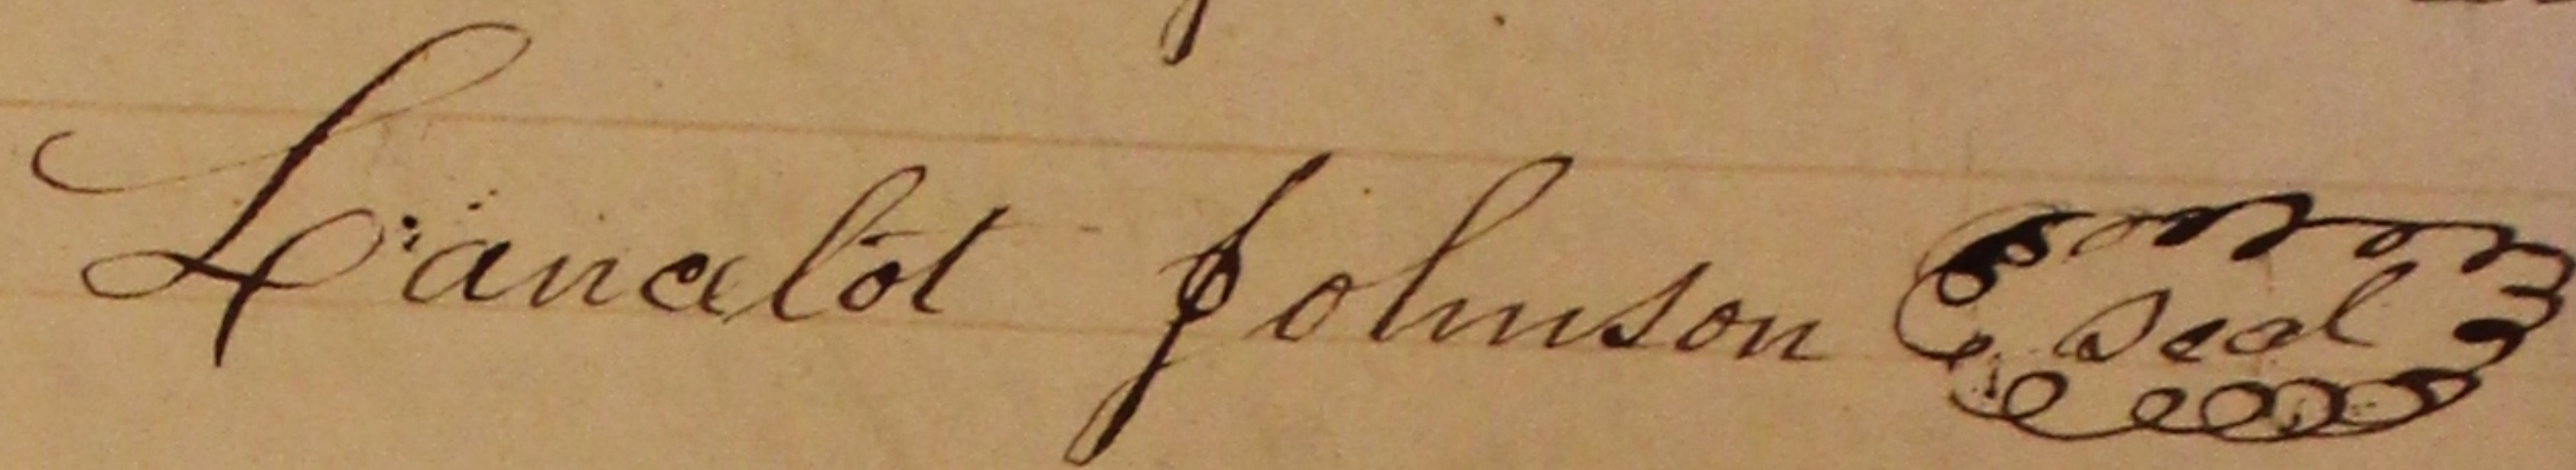 Lancelot Johnson Seal